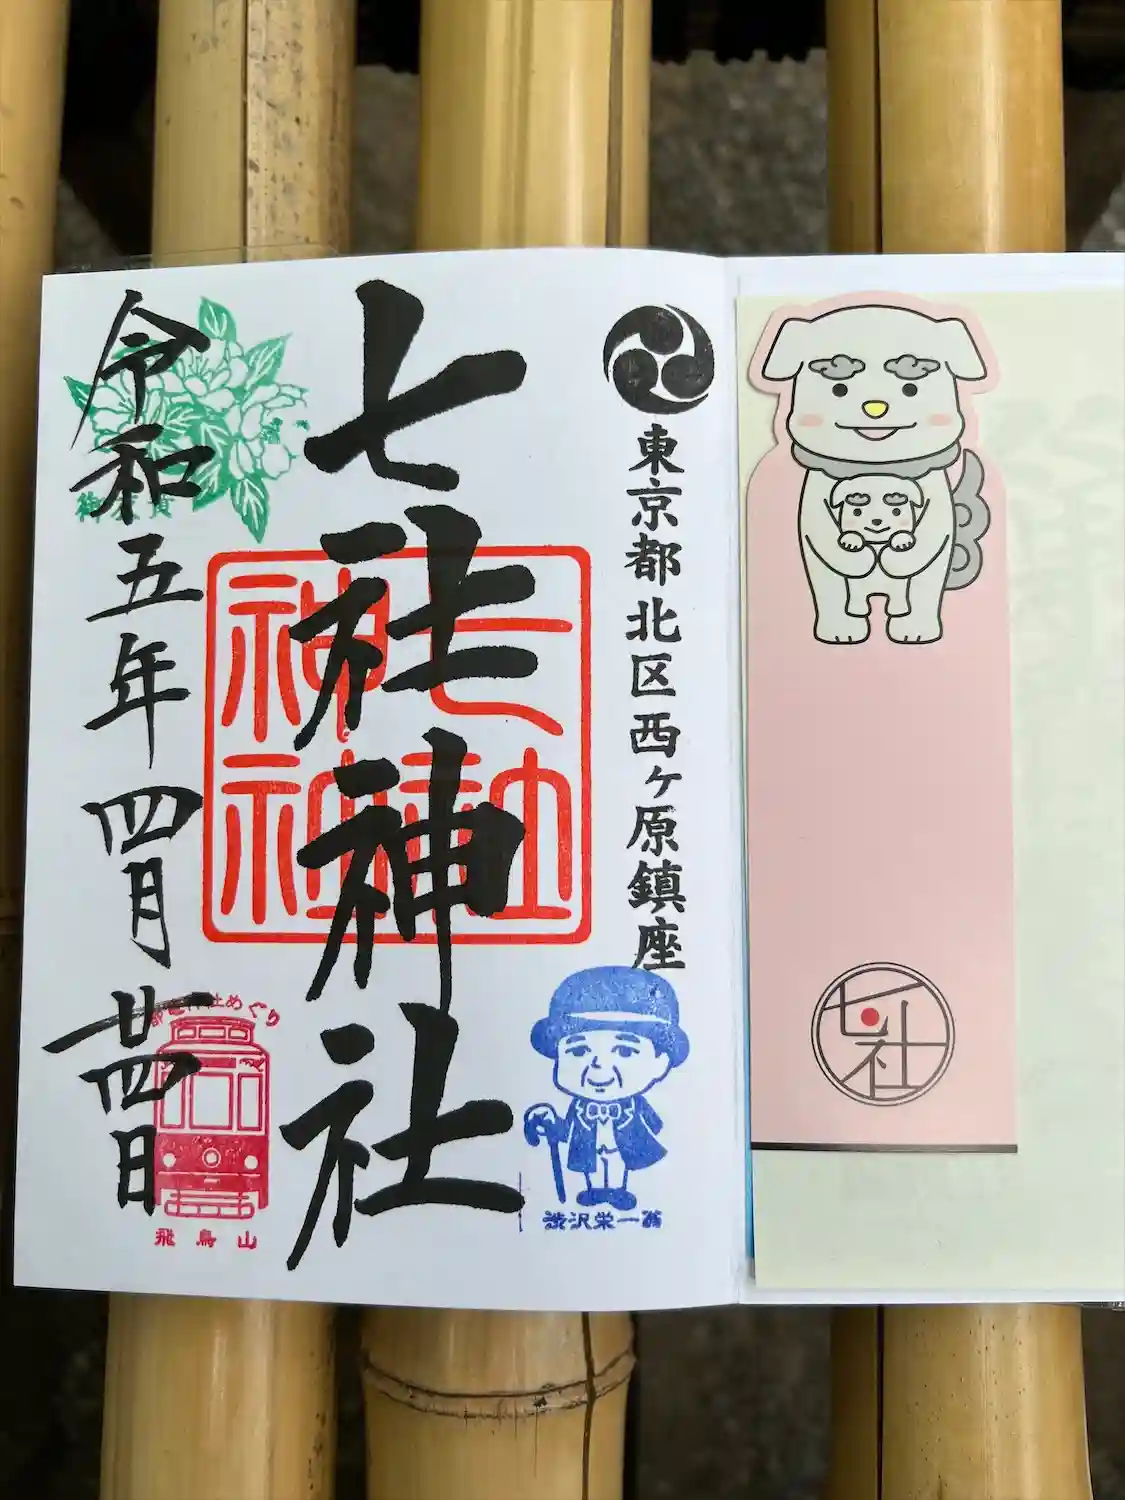 東京都北区西ヶ原鎮座
七社神社
七社
神社
令和五年四月廿四日
御衣黄
めぐり
飛鳥山
渋沢栄一翁
七社